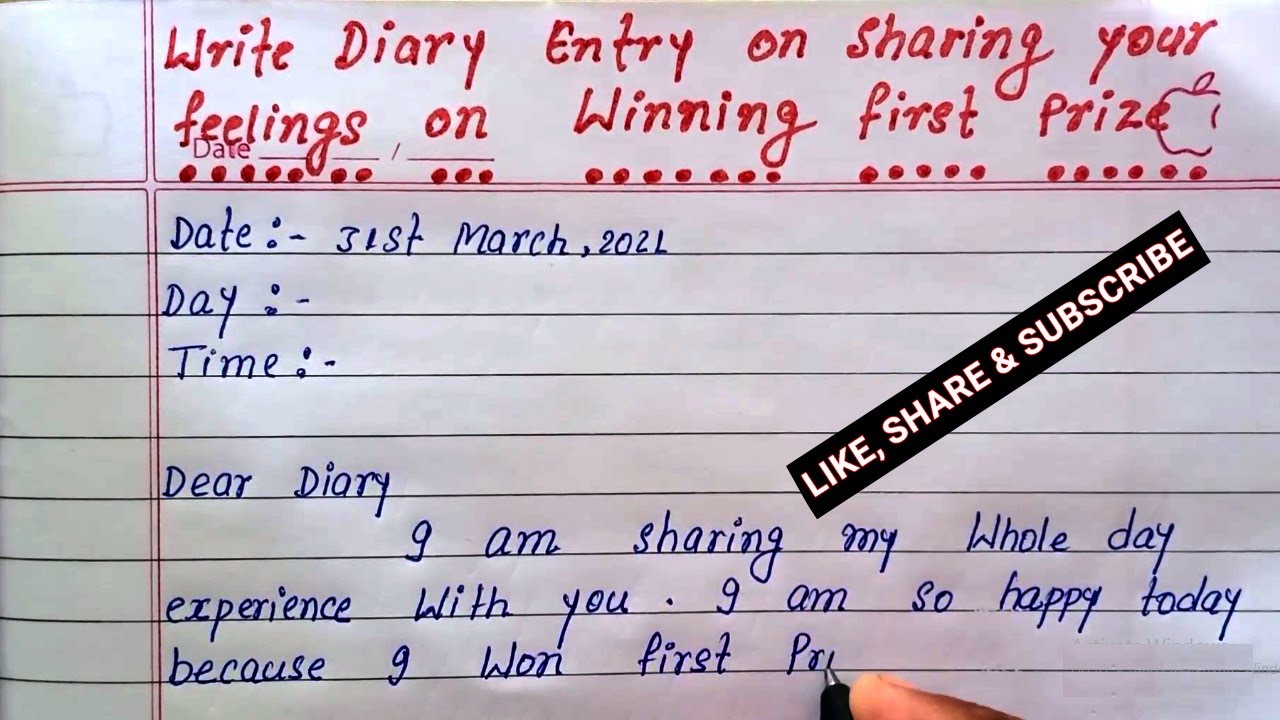 Write Diary Entry on sharing your
feelings on Winning first Prize
Date
Date :- 31st March, 2021
Day :-
Time :-
LIKE, SHARE & SUBSCRIBE
Dear Diary
I am sharing my Whole day
experience With you . I am so happy today
because I Won first Pri